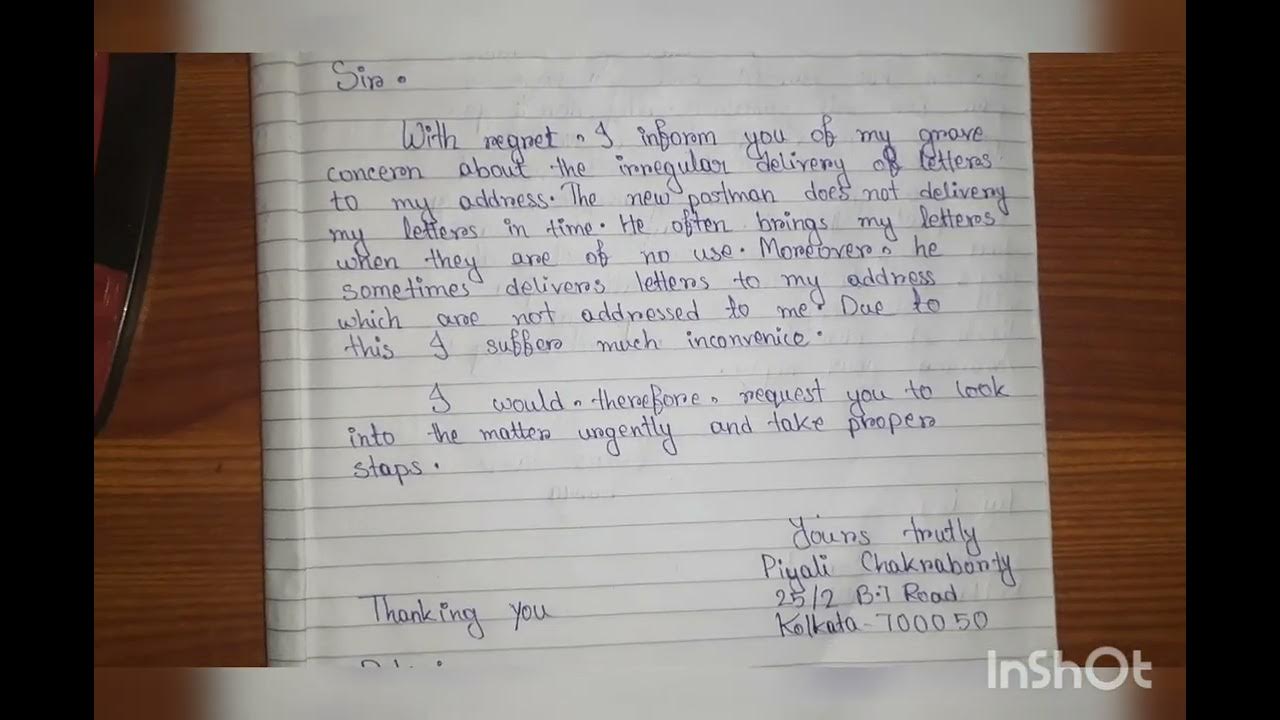 Sir,
With regret, I inform you of my grave
concern about the irregular delivery of letters
to my address. The new postman does not delivery
my letters in time. He often brings my letters
when they are of no use. Moreover, he
sometimes delivers letters to my address
which are not addressed to me. Due to
this I suffer much inconvenice.
I would, therefore, request you to look
into the matter urgently and take proper
staps.
Yours trutly
Piyali Chakraborty
25/2 B.T Road
Thanking you
Kolkata-700050
InShOt